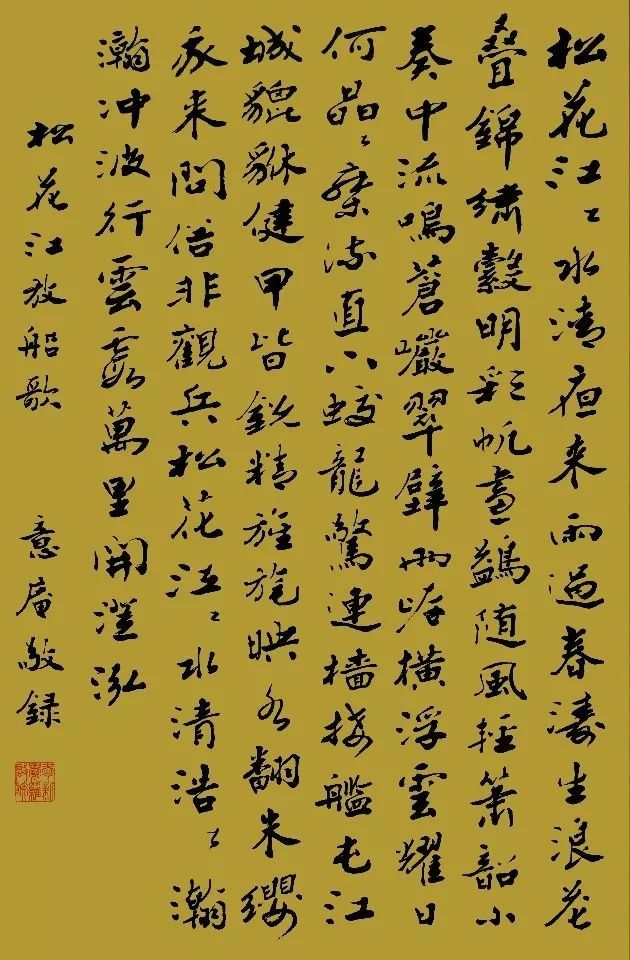 松花江〻水清夜来雨過春濤生浪花
疊錦繡縠明彩帆畫鷁随風輕簫韶小
奏中流鳴蒼巖翠壁兩岸橫浮雲耀日
何晶〻乘流直下蛟龍驚連檣接艦屯江
城貔貅健甲皆鋭精旌旄映水翻朱纓
我来問俗非觀兵松花江〻水清浩〻瀚
瀚冲波行雲霞萬里開澄泓
松花江放船歌
意庵敬録